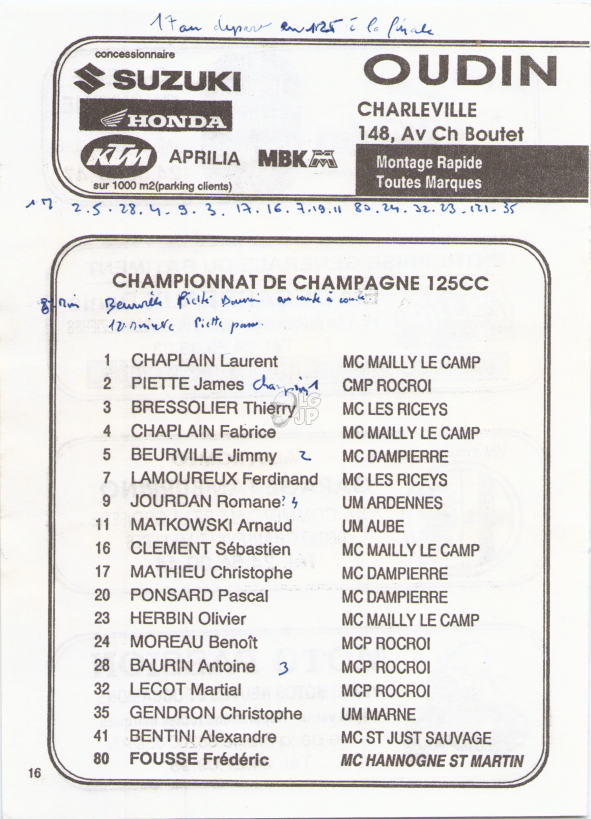 17 au départ en 125 à la finale
concessionnaire
SUZUKI
HONDA
KTM APRILIA MBK
sur 1000 m2(parking clients)
OUDIN
CHARLEVILLE
148, Av Ch Boutet
Montage Rapide
Toutes Marques
2.5.28.4.9.3.17.16.7.19.11 80.24.32.23.121.35
CHAMPIONNAT DE CHAMPAGNE 125CC
Beurville Piette Baurin au coude à coude
12 minute Piette passe.
1 CHAPLAIN Laurent MC MAILLY LE CAMP
2 PIETTE James champion 1 CMP ROCROI
3 BRESSOLIER Thierry MC LES RICEYS
4 CHAPLAIN Fabrice MC MAILLY LE CAMP
5 BEURVILLE Jimmy 2 MC DAMPIERRE
7 LAMOUREUX Ferdinand MC LES RICEYS
9 JOURDAN Romane 4 UM ARDENNES
11 MATKOWSKI Arnaud UM AUBE
16 CLEMENT Sébastien MC MAILLY LE CAMP
17 MATHIEU Christophe MC DAMPIERRE
20 PONSARD Pascal MC DAMPIERRE
23 HERBIN Olivier MC MAILLY LE CAMP
24 MOREAU Benoît MCP ROCROI
28 BAURIN Antoine 3 MCP ROCROI
32 LECOT Martial MCP ROCROI
35 GENDRON Christophe UM MARNE
41 BENTINI Alexandre MC ST JUST SAUVAGE
80 FOUSSE Frédéric MC HANNOGNE ST MARTIN
16
LG
JP